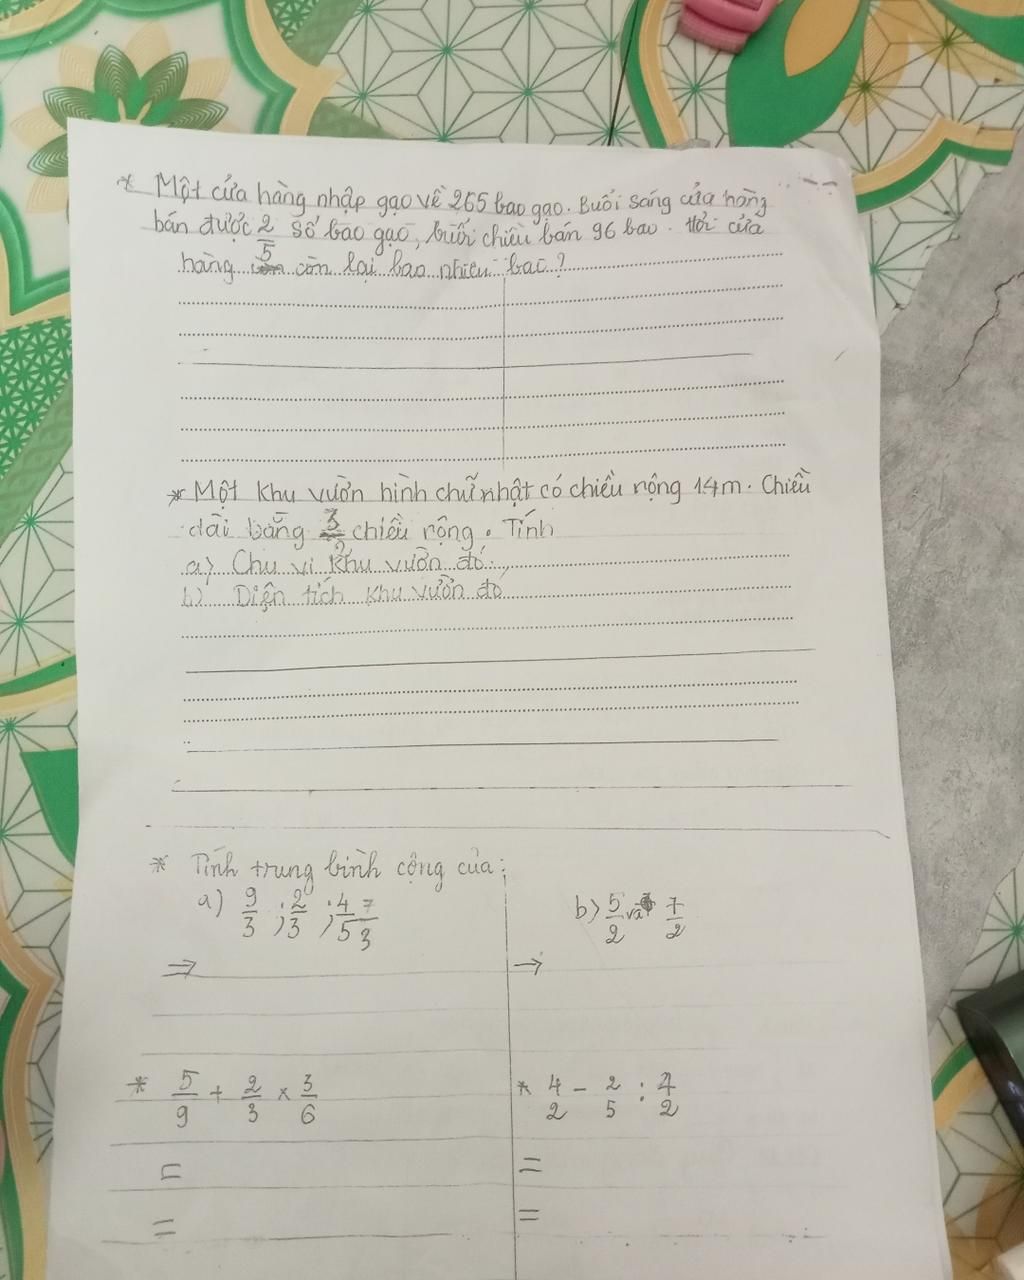 * Một cửa hàng nhập gạo về 265 bao gạo. Buổi sáng cửa hàng
bán được 2/5 số bao gạo, buổi chiều bán 96 bao. Hỏi cửa
hàng còn lại bao nhiêu bao?
* Một khu vườn hình chữ nhật có chiều rộng 14m. Chiều
dài bằng 3/2 chiều rộng. Tính
a) Chu vi khu vườn đó.
b) Diện tích khu vườn đó
* Tính trung bình cộng của:
a) 9/3 ; 2/3 ; 4/5 7/3
b) 5/2 và 7/2
⇒
→
* 5/9 + 2/3 × 3/6
* 4/2 - 2/5 : 4/2
=
=
=
=